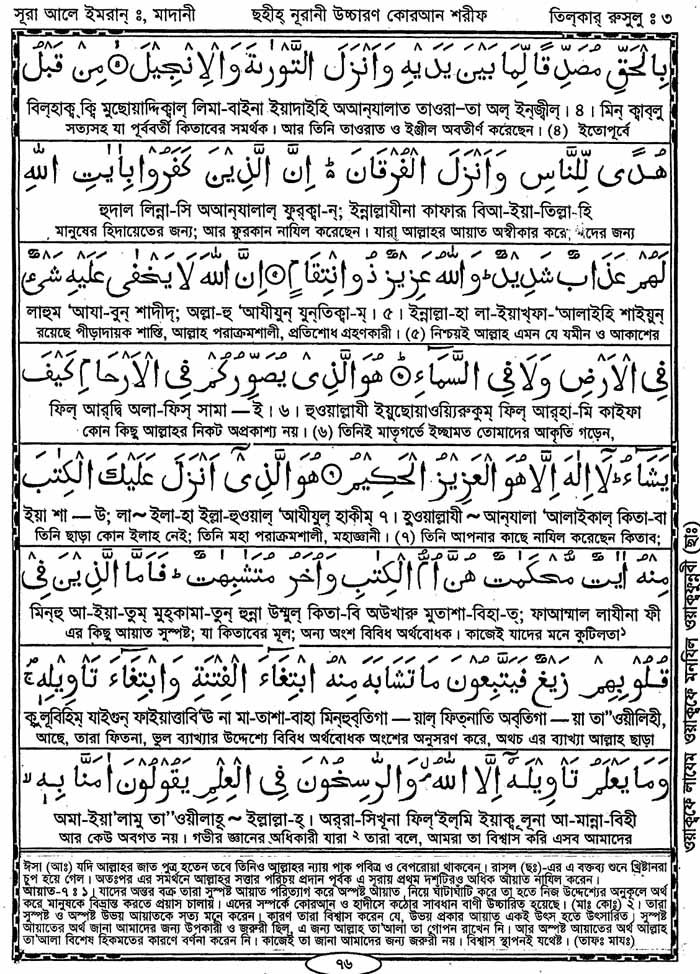 সূরা আলে ইমরান ঃ, মাদানী ছহীহ্ নূরানী উচ্চারণ কোরআন শরীফ তিল্কার্ রুসুলু ঃ ৩
بِالْحَقِّ مُصَدِّقًا لِّمَا بَيْنَ يَدَيْهِ وَأَنْزَلَ التَّوْرٰىةَ وَالْاِنْجِيْلَ ۝ مِنْ قَبْلُ
বিল্হাক্বক্বি মুছোয়াদ্দিক্বাল্ লিমা-বাইনা ইয়াদাইহি অআন্যালাত তাওরা-তা অল্ ইন্জীল্। ৪। মিন্ ক্বাবলু
সত্যসহ যা পূর্ববর্তী কিতাবের সমর্থক। আর তিনি তাওরাত ও ইঞ্জীল অবতীর্ণ করেছেন। (৪) ইতোপূর্বে
هُدًى لِّلنَّاسِ وَأَنْزَلَ الْفُرْقَانَ ؕ اِنَّ الَّذِيْنَ كَفَرُوْا بِاٰيٰتِ اللّٰهِ
হুদাল লিন্না-সি অআন্যালাল্ ফুর্ক্বা-ন্; ইন্নাল্লাযীনা কাফারূ বিআ-ইয়া-তিল্লা-হি
মানুষের হিদায়েতের জন্য; আর ফুরকান নাযিল করেছেন। যারা আল্লাহর আয়াত অস্বীকার করে, এদের জন্য
لَهُمْ عَذَابٌ شَدِيْدٌ ؕ وَاللّٰهُ عَزِيْزٌ ذُو انْتِقَامٍ ۝ اِنَّ اللّٰهَ لَا يَخْفٰى عَلَيْهِ شَىْءٌ
লাহুম 'আযা-বুন্ শাদীদ্; অল্লা-হু 'আযীযুন্ যুন্তিক্বা-ম্। ৫। ইন্নাল্লা-হা লা-ইয়াখ্ফা-'আলাইহি শাইয়ুন্
রয়েছে পীড়াদায়ক শাস্তি, আল্লাহ পরাক্রমশালী, প্রতিশোধ গ্রহণকারী। (৫) নিশ্চয়ই আল্লাহ এমন যে যমীন ও আকাশের
فِى الْاَرْضِ وَلَا فِى السَّمَآءِ ۝ هُوَ الَّذِىْ يُصَوِّرُكُمْ فِى الْاَرْحَامِ كَيْفَ
ফিল্ আর্দ্বি অলা-ফিস্ সামা — ই। ৬। হুওয়াল্লাযী ইয়ুছোয়াওয়্যিরুকুম্ ফিল্ আর্হা-মি কাইফা
কোন কিছু আল্লাহর নিকট অপ্রকাশ্য নয়। (৬) তিনিই মাতৃগর্ভে ইচ্ছামত তোমাদের আকৃতি গড়েন,
يَشَآءُ ؕ لَآ اِلٰهَ اِلَّا هُوَ الْعَزِيْزُ الْحَكِيْمُ ۝ هُوَ الَّذِىْٓ اَنْزَلَ عَلَيْكَ الْكِتٰبَ
ইয়া শা — উ; লা~ ইলা-হা ইল্লা-হুওয়াল্ 'আযীযুল্ হাকীম্ ৭। হুওয়াল্লাযী ~ আন্যালা 'আলাইকাল্ কিতা-বা
তিনি ছাড়া কোন ইলাহ নেই; তিনি মহা পরাক্রমশালী, মহাজ্ঞানী। (৭) তিনি আপনার কাছে নাযিল করেছেন কিতাব;
مِنْهُ اٰيٰتٌ مُّحْكَمٰتٌ هُنَّ اُمُّ الْكِتٰبِ وَاُخَرُ مُتَشٰبِهٰتٌ ؕ فَاَمَّا الَّذِيْنَ فِىْ
মিন্হু আ-ইয়া-তুম্ মুহ্কামা-তুন্ হুন্না উম্মুল্ কিতা-বি অউখারু মুতাশা-বিহা-ত্; ফাআম্মাল লাযীনা ফী
এর কিছু আয়াত সুস্পষ্ট; যা কিতাবের মূল; অন্য অংশ বিবিধ অর্থবোধক। কাজেই যাদের মনে কুটিলতা১
قُلُوْبِهِمْ زَيْغٌ فَيَتَّبِعُوْنَ مَا تَشَابَهَ مِنْهُ ابْتِغَآءَ الْفِتْنَةِ وَابْتِغَآءَ تَاْوِيْلِهٖ ۚ
ক্বুলূবিহিম্ যাইগুন্ ফাইয়াত্তাবি'ঊ না মা-তাশা-বাহা মিন্হুব্তিগা — য়াল্ ফিত্নাতি অব্তিগা — য়া তা"ওয়ীলিহী,
আছে, তারা ফিতনা, ভুল ব্যাখ্যার উদ্দেশ্যে বিবিধ অর্থবোধক অংশের অনুসরণ করে, অথচ এর ব্যাখ্যা আল্লাহ ছাড়া
وَمَا يَعْلَمُ تَاْوِيْلَهٗٓ اِلَّا اللّٰهُ وَالرّٰسِخُوْنَ فِى الْعِلْمِ يَقُوْلُوْنَ اٰمَنَّا بِهٖ
অমা-ইয়া'লামু তা"ওয়ীলাহূ ~ ইল্লাল্লা-হ্। অর্রা-সিখূনা ফিল্'ইল্মি ইয়াক্বূলূনা আ-মান্না-বিহী
আর কেউ অবগত নয়। গভীর জ্ঞানের অধিকারী যারা ২ তারা বলে, আমরা তা বিশ্বাস করি এসব আমাদের
ঈসা (আঃ) যদি আল্লাহর জাত পুত্র হতেন তবে তিনিও আল্লাহর ন্যায় পাক পবিত্র ও বেপরোয়া থাকবেন। রাসূল (ছঃ)-এর এ বক্তব্য শুনে খ্রিষ্টানরা
চুপ হয়ে গেল। অতঃপর এর সমর্থনে আল্লাহর সত্তার পরিচিতি প্রদান পূর্বক এ সূরায় প্রথম দশটিরও অধিক আয়াত নাযিল করেন।
আয়াত-৭ ঃ ১। যাদের অন্তর বক্র তারা সুস্পষ্ট আয়াত পরিত্যাগ করে অস্পষ্ট আয়াত, নিয়ে ঘাঁটাঘাঁটি করে তা হতে নিজ উদ্দেশ্যের অনুকূলে অর্থ
করে মানুষকে বিভ্রান্ত করতে প্রয়াস চালায়। এদের সম্পর্কে কোরআন ও হাদীসে কঠোর সাবধান বাণী উচ্চারিত হয়েছে। (মাঃ কোঃ) ২। তারা
সুস্পষ্ট ও অস্পষ্ট উভয় আয়াতকে সত্য মনে করেন। কারণ তারা বিশ্বাস করেন যে, উভয় প্রকার আয়াত একই উৎস হতে উৎসারিত। সুস্পষ্ট
আয়াতের অর্থ জানা আমাদের জন্য উপকারী ও জরুরী ছিল, এ জন্য আল্লাহ তা'আলা তা গোপন রাখেন নি। আর অস্পষ্ট আয়াতের অর্থ আল্লাহ
তা'আলা বিশেষ হিকমতের কারণে বর্ণনা করেন নি। কাজেই তা জানা আমাদের জন্য জরুরী নয়। বিশ্বাস স্থাপনই যথেষ্ট। (তাফঃ মাযঃ)
৭৬
ওয়াক্ফে লাযেম ওয়াক্ফে মনযিল ওয়াক্ফুন্নবী (ছাঃ)